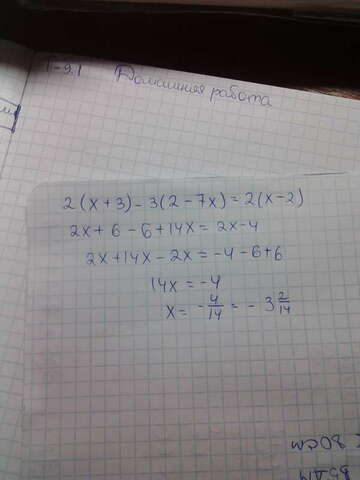 Г-9.1 Домашняя работа
2(x+3)-3(2-7x)=2(x-2)
2x+6-6+14x=2x-4
2x+14x-2x=-4-6+6
14x=-4
x=-4/14=-3 2/14